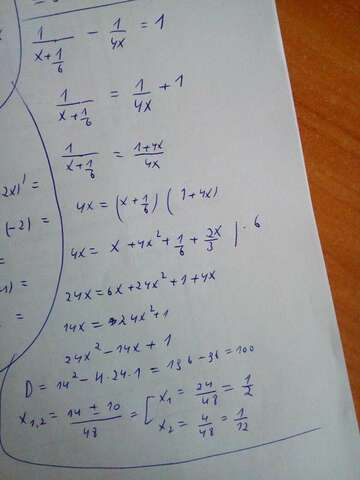 1/(x+1/6) - 1/4x = 1
1/(x+1/6) = 1/4x + 1
1/(x+1/6) = (1+4x)/4x
2x)' =
4x = (x+1/6) (1+4x)
(-2) =
4x = x + 4x² + 1/6 + 2x/3 | · 6
=
24x = 6x + 24x² + 1 + 4x
) =
14x = 24x² + 1
=
24x² - 14x + 1
D = 14² - 4·24·1 = 196 - 96 = 100
x₁,₂ = (14 ± 10)/48 = [ x₁ = 24/48 = 1/2
x₂ = 4/48 = 1/12